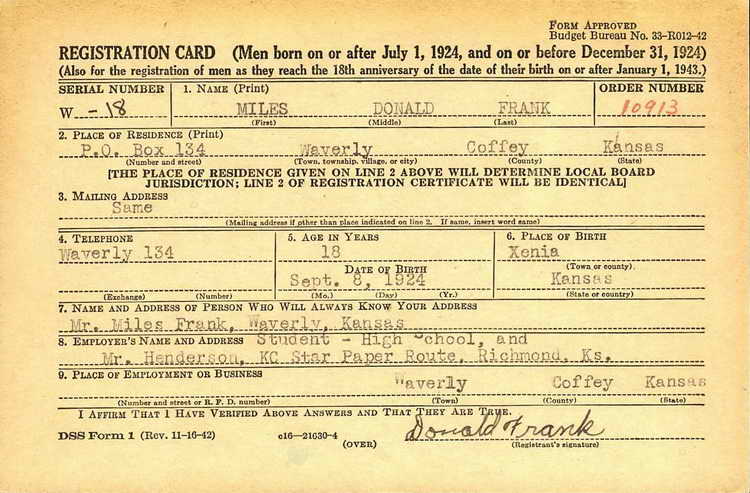 FORM APPROVED
Budget Bureau No. 33-R012-42
REGISTRATION CARD (Men born on or after July 1, 1924, and on or before December 31, 1924)
(Also for the registration of men as they reach the 18th anniversary of the date of their birth on or after January 1, 1943.)
SERIAL NUMBER 1. NAME (Print) ORDER NUMBER
W -18 MILES DONALD FRANK 10913
(First) (Middle) (Last)
2. PLACE OF RESIDENCE (Print)
P.O. Box 134 Waverly Coffey Kansas
(Number and street) (Town, township, village, or city) (County) (State)
[THE PLACE OF RESIDENCE GIVEN ON LINE 2 ABOVE WILL DETERMINE LOCAL BOARD
JURISDICTION; LINE 2 OF REGISTRATION CERTIFICATE WILL BE IDENTICAL]
3. MAILING ADDRESS
Same
(Mailing address if other than place indicated on line 2. If same, insert word same)
4. TELEPHONE 5. AGE IN YEARS 6. PLACE OF BIRTH
Waverly 134 18 Xenia
DATE OF BIRTH (Town or county)
Sept. 8, 1924 Kansas
(Exchange) (Number) (Mo.) (Day) (Yr.) (State or country)
7. NAME AND ADDRESS OF PERSON WHO WILL ALWAYS KNOW YOUR ADDRESS
Mr. Miles Frank, Waverly, Kansas
8. EMPLOYER'S NAME AND ADDRESS Student - High School, and
Mr. Henderson, KC Star Paper Route, Richmond, Ks.
9. PLACE OF EMPLOYMENT OR BUSINESS
Waverly Coffey Kansas
(Number and street or R. F. D. number) (Town) (County) (State)
I AFFIRM THAT I HAVE VERIFIED ABOVE ANSWERS AND THAT THEY ARE TRUE.
DSS Form 1 (Rev. 11-16-42) c16-21630-4 (OVER) Donald Frank
(Registrant's signature)